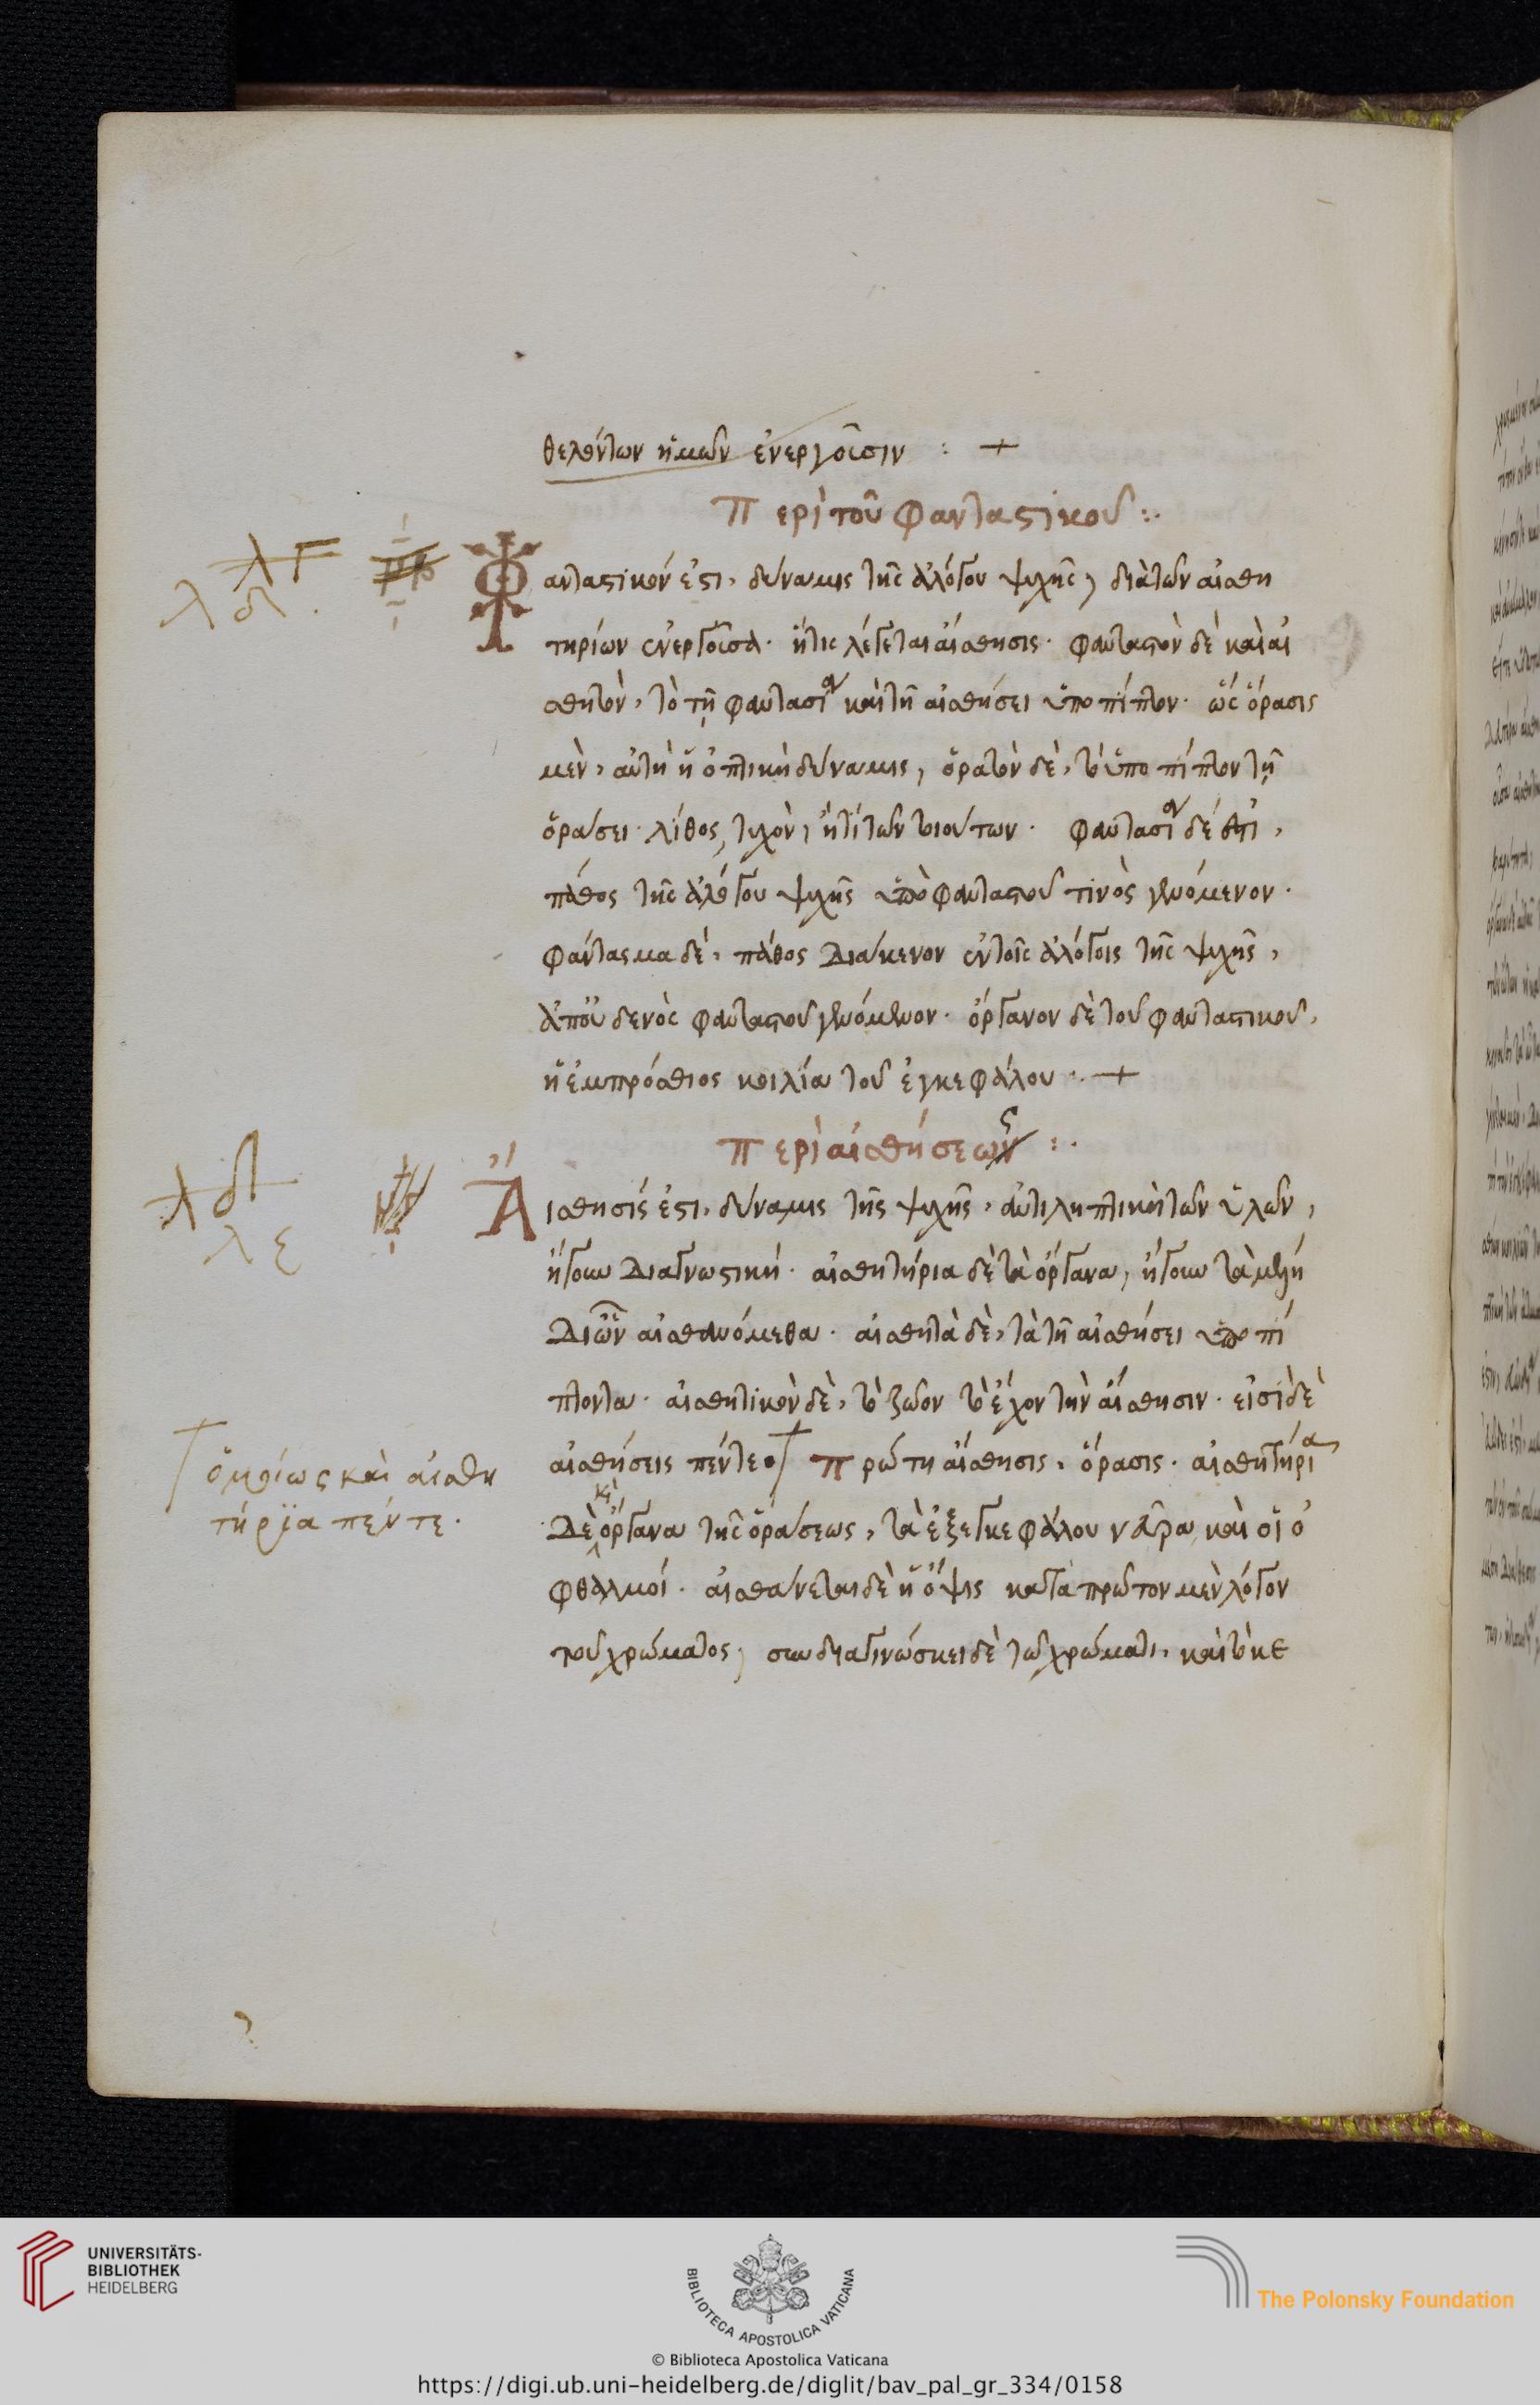 θελόντων ἡμῶν ἐνεργοῦσιν : +
Περὶ τοῦ φανταστικοῦ :.
λγ
λδ.
Φανταστικόν ἐστι, δύναμις τῆς ἀλόγου ψυχῆς, διὰ τῶν αἰσθη
τηρίων ἐνεργοῦσα. ἥτις λέγεται αἴσθησις. φανταστὸν δὲ καὶ αἰ
σθητὸν, τὸ τῇ φαντασίᾳ καὶ τῇ αἰσθήσει ὑποπίπτον. ὡς ὅρασις
μὲν, αὐτὴ ἡ ὀπτικὴ δύναμις, ὁρατὸν δὲ, τὸ ὑποπίπτον τῇ
ὁράσει. λίθος, τυχὸν, ἤ τι τῶν τοιούτων. φαντασία δέ ἐστι,
πάθος τῆς ἀλόγου ψυχῆς ὑπὸ φανταστοῦ τινὸς γινόμενον.
φάντασμα δὲ, πάθος διάκενον ἐν τοῖς ἀλόγοις τῆς ψυχῆς,
ἀπ' οὐδενὸς φανταστοῦ γινόμενον. ὄργανον δὲ τοῦ φανταστικοῦ,
ἡ ἐμπρόσθιος κοιλία τοῦ ἐγκεφάλου. +
Περὶ αἰσθήσεως :.
λδ
λε
Αἴσθησίς ἐστι, δύναμις τῆς ψυχῆς, ἀντιληπτικὴ τῶν ὑλῶν,
ἤγουν διαγνωστική. αἰσθητήρια δὲ τὰ ὄργανα, ἤγουν τὰ μέλη
δι' ὧν αἰσθανόμεθα. αἰσθητὰ δὲ, τὰ τῇ αἰσθήσει ὑποπί
πτοντα. αἰσθητικὸν δὲ, τὸ ζῶον τὸ ἔχον τὴν αἴσθησιν. εἰσὶ δὲ
αἰσθήσεις πέντε. Πρώτη αἴσθησις, ὅρασις. αἰσθητήρια
ὁμοίως καὶ αἰσθη
τήρϊα πέντε.
δὲ κὶ ὄργανα τῆς ὁράσεως, τὰ ἐξ ἐγκεφάλου νεῦρα καὶ οἱ ὀ
φθαλμοί. αἰσθάνεται δὲ ἡ ὄψις κατὰ πρῶτον μὲν λόγον
τοῦ χρώματος, συνδιαγινώσκει δὲ τῷ χρώματι, καὶ τὸ κε
UNIVERSITÄTS-
BIBLIOTHEK
HEIDELBERG
BIBLIOTECA APOSTOLICA VATICANA
The Polonsky Foundation
© Biblioteca Apostolica Vaticana
https://digi.ub.uni-heidelberg.de/diglit/bav_pal_gr_334/0158